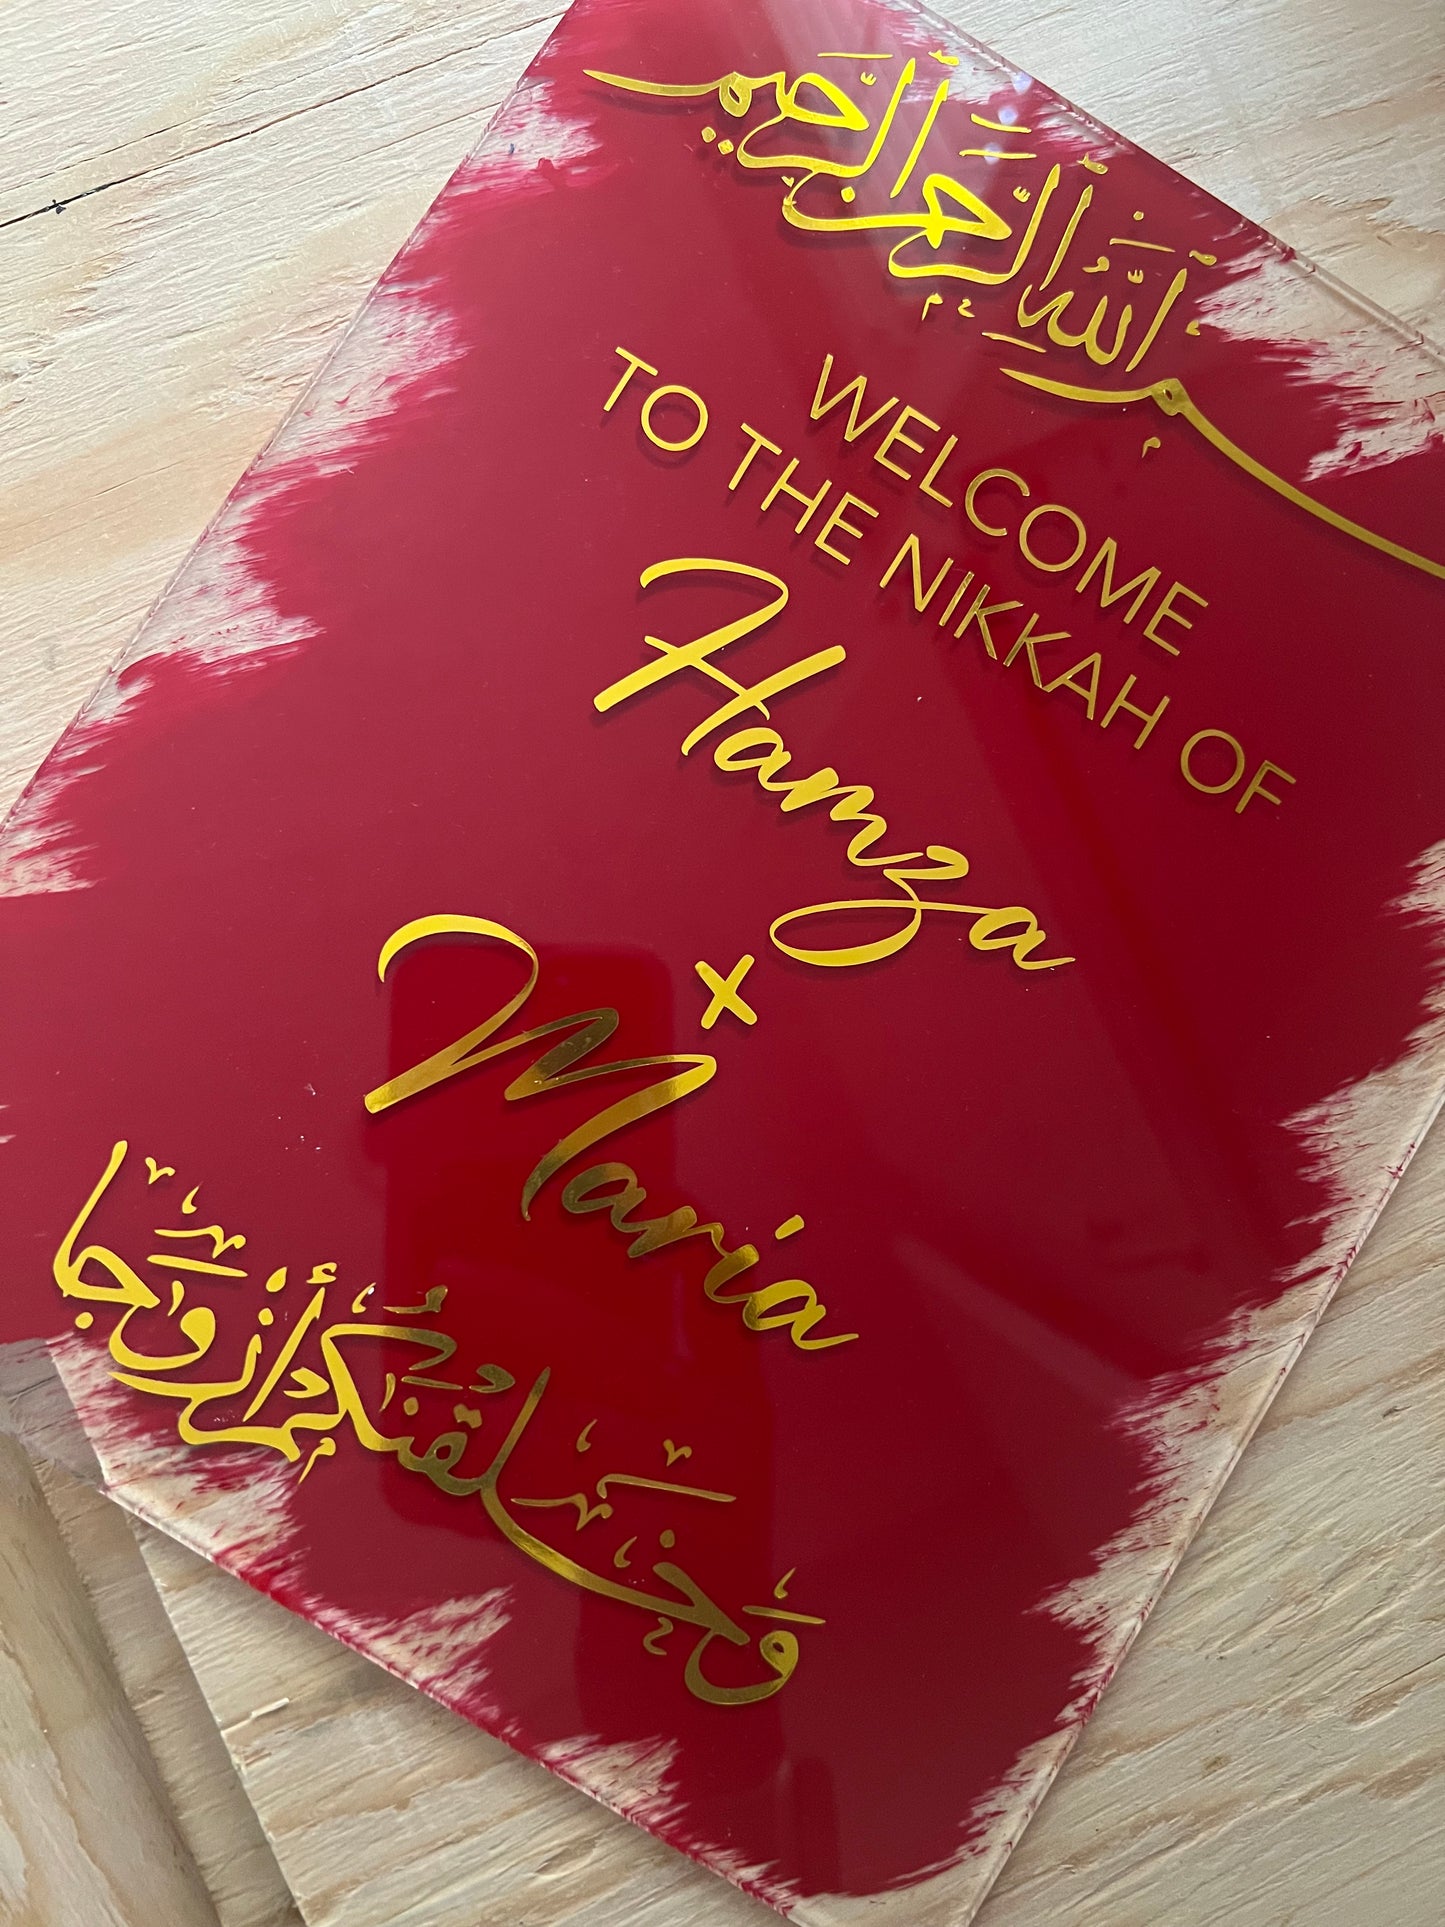 بِسْمِ اللَّهِ الرَّحْمَٰنِ الرَّحِيمِ
WELCOME
TO THE NIKKAH OF
Hamza
x
Maria
وَخَلَقْنَاكُمْ أَزْوَاجًا